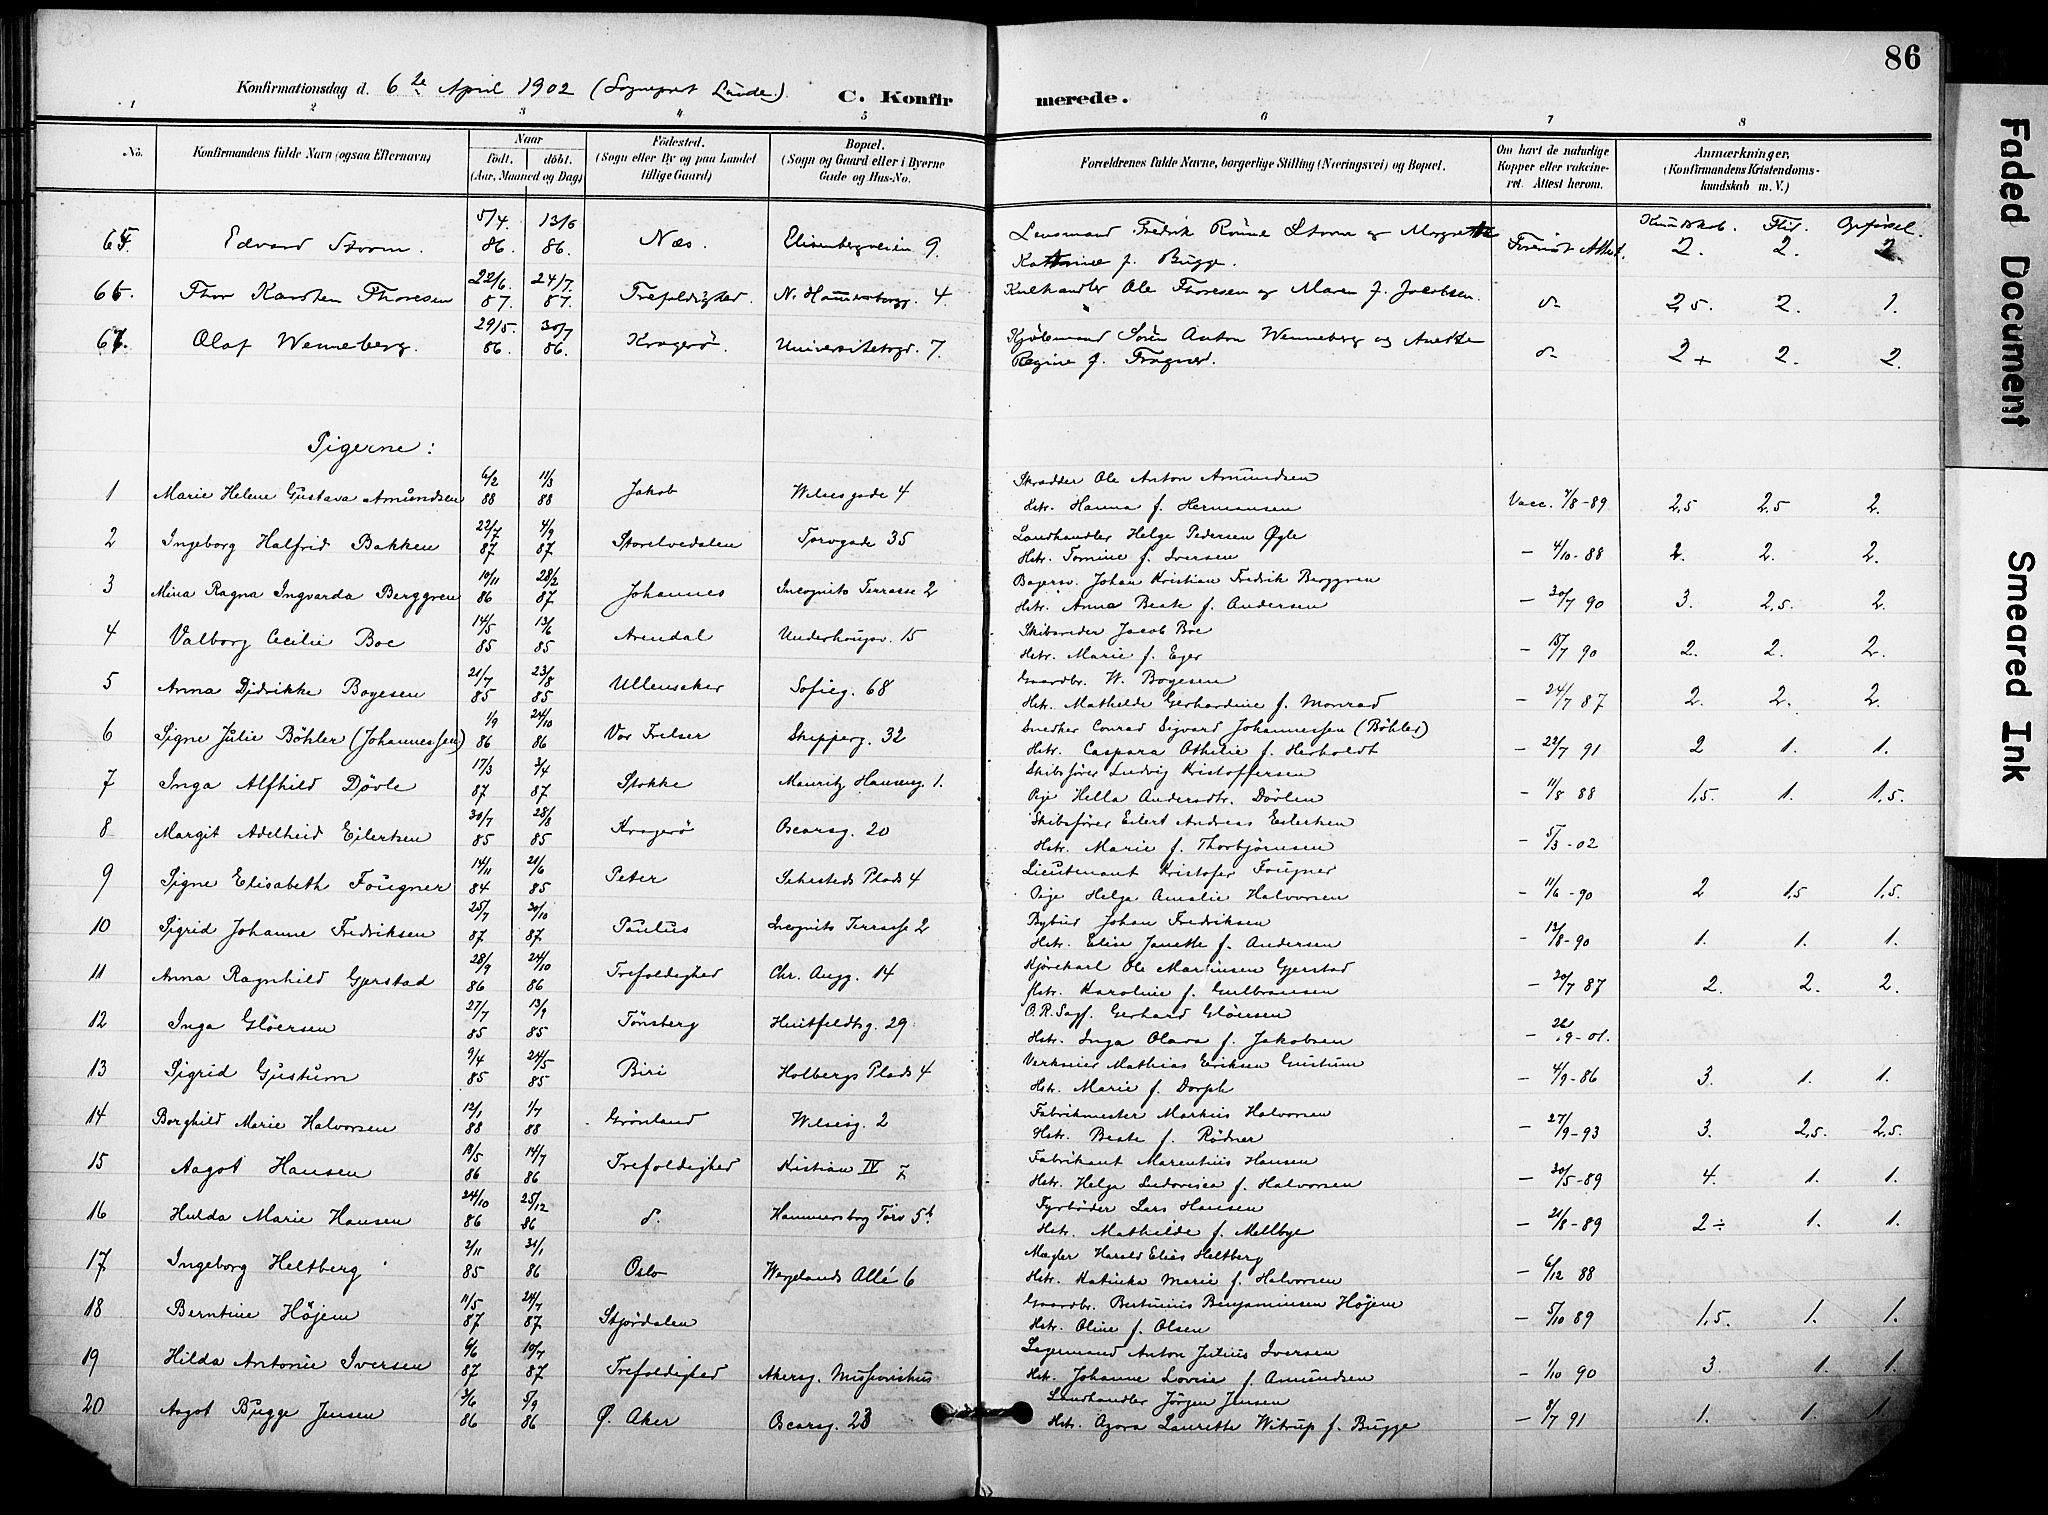 86
Konfirmationsdag d. 6te April 1902 (Sogneprst Lunde.) C. Konfirmerede.
1 2 3 4 5 6 7 8
No. Konfirmandens fulde Navn (ogsaa Efternavn) Naar födt. döbt. (Aar, Maaned og Dag) Födested. (Sogn eller By og paa Landet tillige Gaard) Bopæl. (Sogn og Gaard eller i Byerne Gade og Hus-No. Forældrenes fulde Navne, borgerlige Stilling (Næringsvei) og Bopæl. Om havt de naturlige Kopper eller vakcineret. Attest herom. Anmærkninger. (Konfirmandens Kristendomskundskab m. V.)
Kundskab. Flid. Opførsel.
65. Edvard Storm. 5/4. 86. 13/6 86. Næs. Elisenbergveien 9. Lensmand Fredrik Rönne Storm og Magrethe Kathrine f. Bugge. Forevist Attest. 2. 2. 2
66. Thor Karsten Thoresen 22/6. 87. 24/7. 87. Trefoldighed. N. Hammersborgg. 4. Kulhandler Ole Thoresen og Maren f. Jacobsen. d- 2,5. 2. 1.
67. Olaf Wenneberg. 29/5. 86. 30/7 86. Kragerö. Universitetsgd. 7. Kjøbmand Sörn Anton Wenneberg og Anette Regine f. Fragner. d- 2+ 2. 2.
Pigerne:
1 Marie Helene Gustava Amundsen 6/2 88 11/3 88 Jakob Wilsesgade 4 Skrædder Ole Anton Amundsen
Hstr. Hanna f. Hermansen Vacc. 7/8-89 2,5 2,5 2.
2 Ingeborg Halfrid Bakken 22/7 87 4/9 87 Storelvedalen Torvgade 35 Landhandler Helge Pedersen Øgle
Hstr. Tomine f. Iversen - 4/10-88 2. 2. 2.
3 Mina Ragna Ingvarda Berggren 10/11 86 28/2 87 Johannes Incognito Terrasse 2 Bagersv. Johan Kristian Fredrik Berggren
Hstr. Anna Beate f. Andersen - 30/7 90 3. 2,5. 2.
4 Valborg Cecilie Boe 14/5 85 13/6 85 Arendal Underhaugsv. 15 Skibsreder Jacob Boe
Hstr. Marie f. Eger - 15/7 90 2. 2. 2.
5 Anna Didrikke Boyesen 21/7 85 23/8 85 Ullensaker Sofieg. 68 Gaardbr. W. Boyesen
Hstr. Mathilde Gerhardine f. Monrad - 24/7 87 2. 2. 2.
6 Signe Julie Böhler (Johannessen) 1/9 86 24/10 86 Vor Frelser Skipperg. 32 Snedker Conrad Sigvard Johannessen (Böhler)
Hstr. Caspara Othilie f. Herholdt - 22/7 91 2 1. 1.
7 Inga Alfhild Dövle 17/3 87 3/4 87 Stokke Mauritz Hanseng. 1. Skibsfører Ludvig Kristoffersen
Pige Hella Andersdtr. Dövlen - 11/8 88 1,5. 1. 1,5.
8 Margit Adelheid Eilertsen 30/7 85 28/8 85 Kragerö Oscarsg. 20 Skibsfører Eilert Andreas Eilertsen
Hstr. Marie f. Thorbjörnsen - 5/3-02
9 Signe Elisabeth Fougner 14/11 84 21/6 85 Peter Sehesteds Plads 4 Lieutenant Kristofer Fougner
Pige Helga Amalie Halvorsen - 11/6-90 2 1,5 1,5.
10 Sigrid Johanne Fredriksen 25/7 87 30/10 87 Paulus Incognito Terrasse 2 Bybud Johan Fredriksen
Hstr. Elise Janette f. Andersen - 12/8-90 1. 1. 1.
11 Anna Ragnhild Gjerstad 28/9 86 24/10 86 Trefoldighed Chr. Augg. 14 Kjörekarl Ole Martinsen Gjerstad
Hstr. Karoline f. Gulbransen - 20/7 87 2. 2. 2.
12 Inga Glöersen 27/7 85 13/9 85 Tönsberg Huitfeldtsg. 29 O.R.Sagf. Gerhard Glöersen
Hstr. Inga Olava f. Jakobsen - 26/9-01.
13 Sigrid Gustum 9/4 85 24/5 85 Biri Holbergs Plads 4 Verkseier Mathias Eriksen Gustum
Hstr. Marie f. Dorph - 4/9-86 3. 1. 1.
14 Borghild Marie Halvorsen 12/1 88 1/7 88 Grönland Wilsesg. 2 Fabrikmester Markus Halvorsen
Hstr. Beate f. Rödner - 27/9-93 3. 2,5. 2,5.
15 Aagot Hansen 19/5 86 14/7 86 Trefoldighed Kristian IV 7 Fabrikant Marentius Hansen
Hstr. Helga Ludovica f. Halvorsen - 30/5-89 4. 1. 1.
16 Hulda Marie Hansen 24/10 86 25/12 86 d. Hammersborg Torv 5b Fyrböder Lars Hansen
Hstr. Mathilde f. Mellbye - 21/8-89 2÷ 1. 1.
17 Ingeborg Heltberg 2/11 85 31/1 86 Oslo Wergelands Allé 6 Mægler Harald Elias Heltberg
Hstr. Katinka Marie f. Halvorsen - 6/12 88
18 Berntine Höjem 11/5 87 24/7 87. Stjördalen Gaardbr. Bertinius Benjaminsen Höjem
Hstr. Oline f. Olsen - 5/10 89 1,5. 1. 1.
19 Hilda Antonie Iversen 6/6 87 10/7 87 Trefoldighed Akersg. Missionshus Lagermand Anton Julius Iversen
Hstr. Johanne Lovise f. Amundsen - 1/10 90 3 1. 1.
20 Aagot Bugge Jensen 3/6 86 5/9 86 Ø. Aker Oscarsg. 23 Landhandler Jörgen Jensen
Hstr. Agora Laurette Witrup f. Bugge - 8/7 91 1. 1. 1.
Faded Document
Smeared Ink